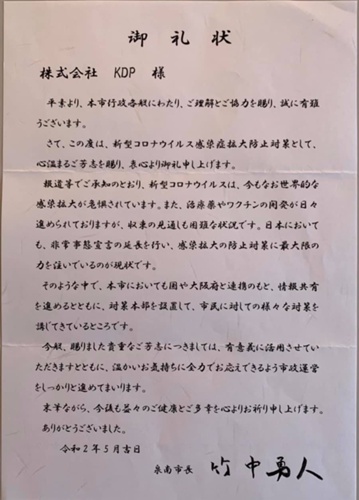 御礼状
株式会社 KDP 様
平素より、本市行政各般にわたり、ご理解とご協力を賜り、誠に有難
うございます。
さて、この度は、新型コロナウイルス感染症拡大防止対策として、
心温まるご芳志を賜り、衷心より御礼申し上げます。
報道等でご承知のとおり、新型コロナウイルスは、今もなお世界的な
感染拡大が危惧されています。また、治療薬やワクチンの開発が日々
進められておりますが、収束の見通しも困難な状況です。日本において
も、非常事態宣言の延長を行い、感染拡大の防止対策に最大限の
力を注いでいるのが現状です。
そのような中で、本市においても国や大阪府と連携のもと、情報共有
を進めるとともに、対策本部を設置して、市民に対しての様々な対策を
講じてきているところです。
今般、賜りました貴重なご芳志につきましては、有意義に活用させてい
ただきますとともに、温かいお気持ちに全力でお応えできるよう市政運営
をしっかりと進めてまいります。
末筆ながら、今後も益々のご健康とご多幸を心よりお祈り申し上げます。
ありがとうございました。
令和2年5月吉日
泉南市長 竹中勇人